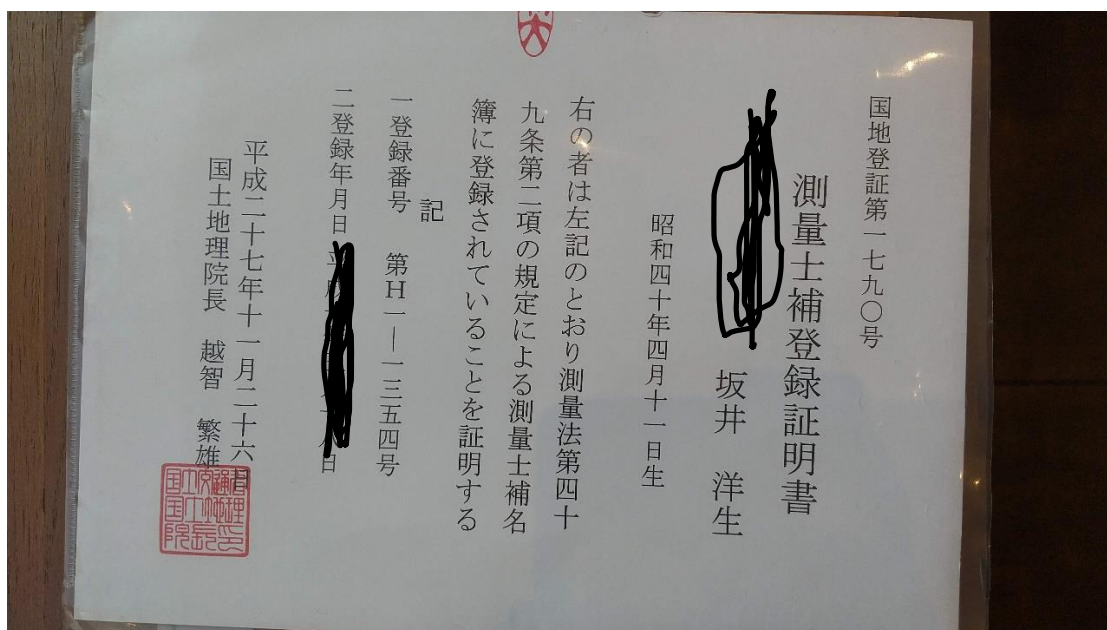 国地登証第一七九〇号
測量士補登録証明書
坂井 洋生
昭和四十年四月十一日生
右の者は左記のとおり測量法第四十
九条第二項の規定による測量士補名
簿に登録されていることを証明する
記
一登録番号 第H一―一三五四号
二登録年月日 日
平成二十七年十一月二十六日
国土地理院長 越智 繁雄